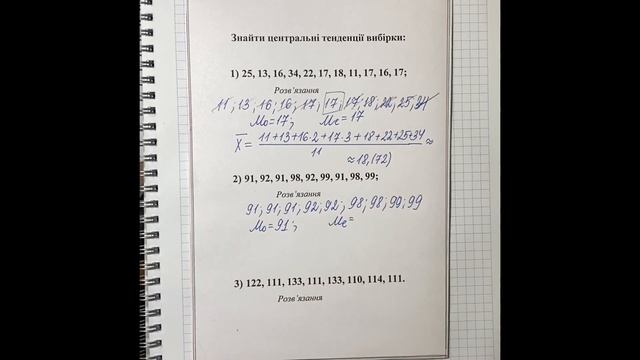 Знайти центральні тенденції вибірки:
1) 25, 13, 16, 34, 22, 17, 18, 11, 17, 16, 17;
Розв'язання
11; 13; 16; 16; 17; 17; 17; 18; 22; 25; 34
Mo=17; Me = 17
X̄ = (11+13+16·2+17·3+18+22+25+34)/11 ≈
≈18,(72)
2) 91, 92, 91, 98, 92, 99, 91, 98, 99;
Розв'язання
91; 91; 91; 92; 92; 98; 98; 99; 99
Mo=91; Me=
3) 122, 111, 133, 111, 133, 110, 114, 111.
Розв'язання